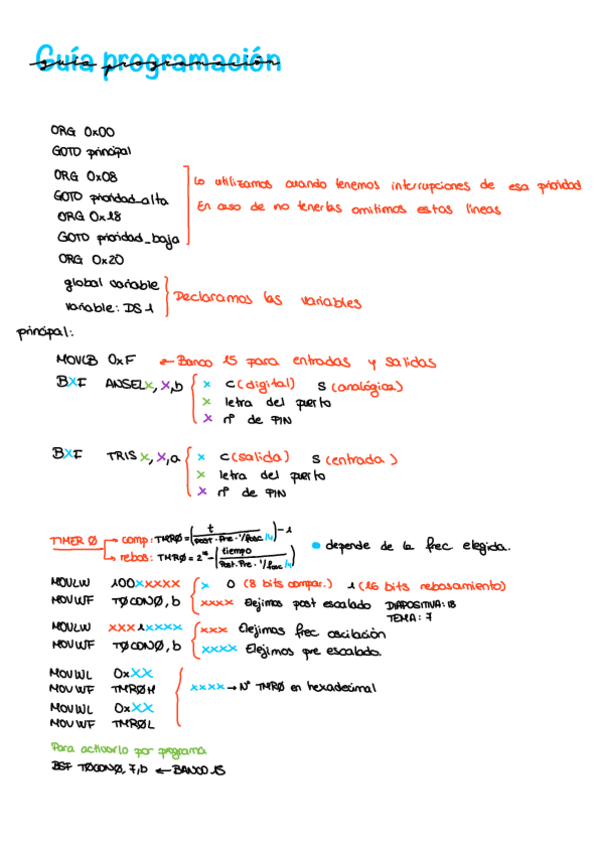 Guía programación
ORG 0x00
GOTO principal
ORG 0x08
GOTO prioridad_alta
ORG 0x18
GOTO prioridad_baja
Lo utilizamos cuando tenemos interrupciones de esa prioridad
En caso de no tenerlas omitimos estas líneas
ORG 0x20
global variable
variable: DS 1
Declaramos las variables
principal:
MOVLB 0xF ← Banco 15 para entradas y salidas
BXF ANSELX, X,b { x C(digital) S (analógica)
x letra del puerto
x nº de PIN
BXF TRIS X, X,a { x C(salida) S (entrada)
x letra del puerto
x nº de PIN
TIMER Ø → comp: TMRØ = (t / Post · Pre · 1/fosc/4) - 1
→ rebos: TMRØ = 2¹⁶ - (tiempo / Post · Pre · 1/fosc/4)
• depende de la frec elegida.
MOVLW 100XXXXX { x 0 (8 bits compar.) 1 (16 bits rebosamiento)
MOVWF TØCONØ, b xxxx Elejimos post escalado DIAPOSITIVA: 18
TEMA: 7
MOVLW XXX1XXXX { xxx Elejimas frec oscilación
MOVWF TØCONØ, b xxxx Elejimos pre escalado.
MOVWL 0xXX
MOVWF TMRØH
MOVWL 0xXX
MOVWF TMRØL
xxxx → Nº TMRØ en hexadecimal
Para activarlo por programa
BSF TØCONØ, 7, b ← BANCO 15